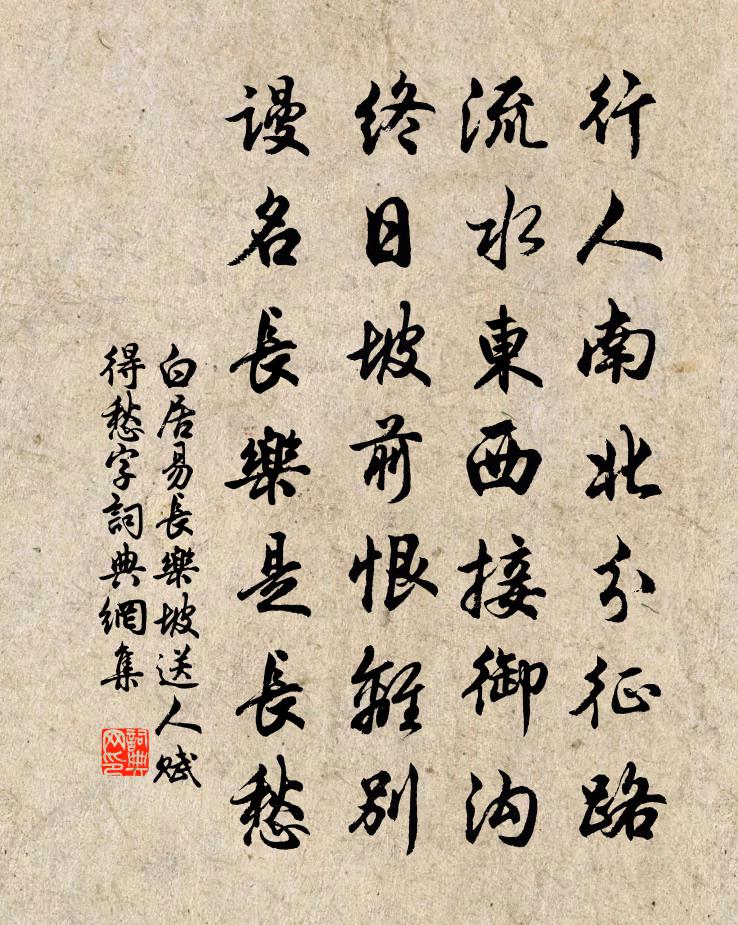 行人南北分征路
流水東西接御沟
终日坡前恨離别
謾名長樂是長愁
白居易長樂坡送人賦
得愁字詞典網集
詞典网印